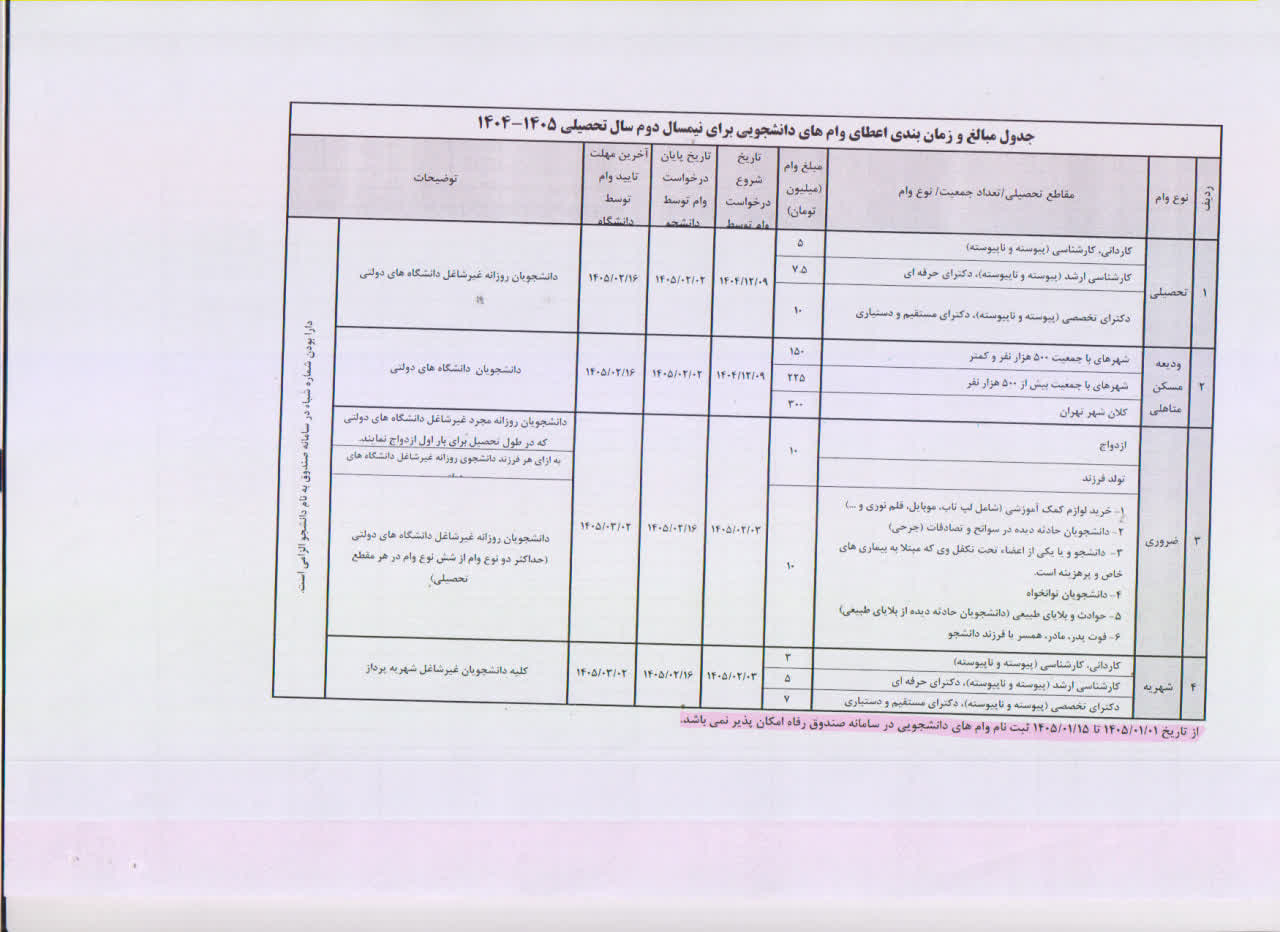 جدول مبالغ و زمان بندی اعطای وام های دانشجویی برای نیمسال دوم سال تحصیلی ۱۴۰۵-۱۴۰۴
ردیف
نوع وام
مقاطع تحصیلی/تعداد جمعیت/ نوع وام
مبلغ وام
(میلیون
تومان)
تاریخ
شروع
درخواست
وام توسط
تاریخ پایان
درخواست
وام توسط
دانشجو
آخرین مهلت
تایید وام
توسط
دانشگاه
توضیحات
۱
تحصیلی
کاردانی، کارشناسی (پیوسته و ناپیوسته)
۵
کارشناسی ارشد (پیوسته و ناپیوسته)، دکترای حرفه ای
۷.۵
دکترای تخصصی (پیوسته و ناپیوسته)، دکترای مستقیم و دستیاری
۱۰
۱۴۰۴/۱۲/۰۹
۱۴۰۵/۰۲/۰۲
۱۴۰۵/۰۲/۱۶
دانشجویان روزانه غیرشاغل دانشگاه های دولتی
۲
ودیعه
مسکن
متاهلی
شهرهای با جمعیت ۵۰۰ هزار نفر و کمتر
۱۵۰
شهرهای با جمعیت بیش از ۵۰۰ هزار نفر
۲۲۵
کلان شهر تهران
۳۰۰
۱۴۰۴/۱۲/۰۹
۱۴۰۵/۰۲/۰۲
۱۴۰۵/۰۲/۱۶
دانشجویان دانشگاه های دولتی
۳
ضروری
ازدواج
تولد فرزند
۱۰
۱- خرید لوازم کمک آموزشی (شامل لپ تاپ، موبایل، قلم نوری و ...)
۲- دانشجویان حادثه دیده در سوانح و تصادفات (جرحی)
۳- دانشجو و یا یکی از اعضاء تحت تکفل وی که مبتلا به بیماری های
خاص و پرهزینه است.
۴- دانشجویان توانخواه
۵- حوادث و بلایای طبیعی (دانشجویان حادثه دیده از بلایای طبیعی)
۶- فوت پدر، مادر، همسر یا فرزند دانشجو
۱۰
۱۴۰۵/۰۲/۰۳
۱۴۰۵/۰۲/۱۶
۱۴۰۵/۰۳/۰۲
دانشجویان روزانه مجرد غیرشاغل دانشگاه های دولتی
که در طول تحصیل برای بار اول ازدواج نمایند.
به ازای هر فرزند دانشجوی روزانه غیرشاغل دانشگاه های
دانشجویان روزانه غیرشاغل دانشگاه های دولتی
(حداکثر دو نوع وام از شش نوع وام در هر مقطع
تحصیلی)
۴
شهریه
کاردانی، کارشناسی (پیوسته و ناپیوسته)
۳
کارشناسی ارشد (پیوسته و ناپیوسته)، دکترای حرفه ای
۵
دکترای تخصصی (پیوسته و ناپیوسته)، دکترای مستقیم و دستیاری
۷
۱۴۰۵/۰۲/۰۳
۱۴۰۵/۰۲/۱۶
۱۴۰۵/۰۳/۰۲
کلیه دانشجویان غیرشاغل شهریه پرداز
دارا بودن شماره شباه در سامانه صندوق به نام دانشجو الزامی است.
از تاریخ ۱۴۰۵/۰۱/۰۱ تا ۱۴۰۵/۰۱/۱۵ ثبت نام وام های دانشجویی در سامانه صندوق رفاه امکان پذیر نمی باشد.